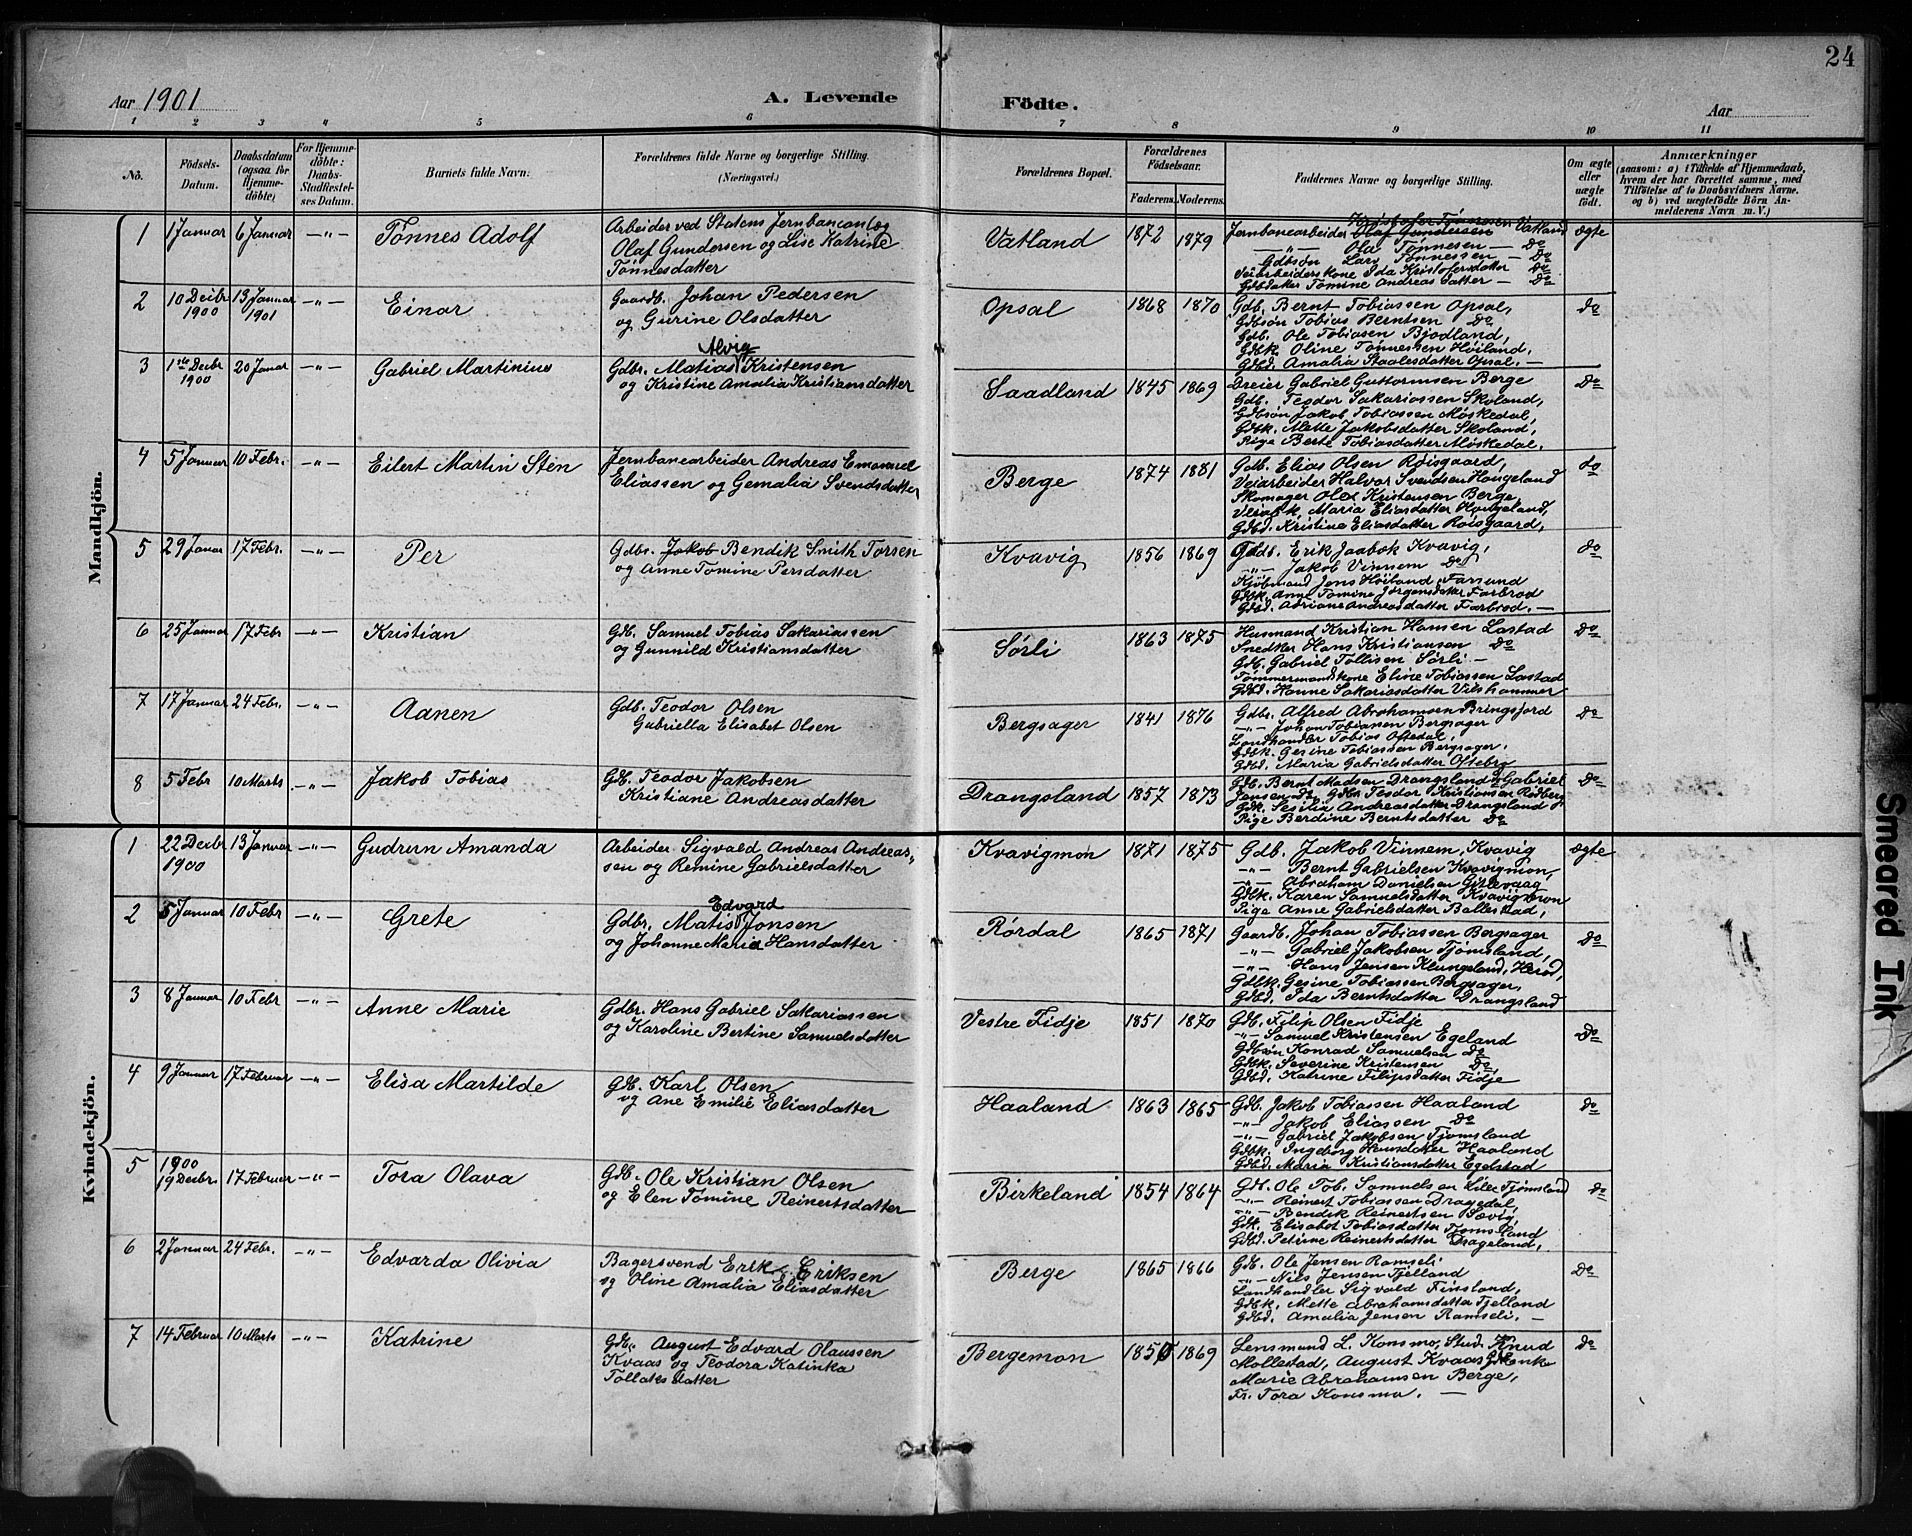 24
Aar 1901
A. Levende Födte.
Aar
1 2 3 4 5 6 7 8 9 10 11
No.
Födsels-Datum.
Daabsdatum (ogsaa for Hjemme-döbte)
For Hjemme-döbte: Daabs-Stadfæstel-ses Datum.
Barnets fulde Navn.
Forældrenes fulde Navne og borgerlige Stilling. (Næringsvei.)
Forældrenes Bopæl.
Forældrenes Födselsaar.
Faderens. Moderens.
Faddernes Navne og borgerlige Stilling.
Om ægte eller uægte födt.
Anmærkninger
(saasom: a) i Tilfælde af Hjemmedaab,
hvem der har forrettet samme, med
Tilföielse af to Daabsvidners Navne.
og b) ved uægtefödte Börn An-
melderens Navn m. V.)
Mandkjön.
1 1 Januar 6 Januar -"- Tönnes Adolf
Arbeider ved Statens Jernbaneanlæg
Olaf Gundersen og Lise Katrine
Tönnesdatter
Vatland 1872 1879
Kristofer Tönnesen
Jernbanearbeider Olaf Gundersen Vatland ægte
-"- Ola Tönnesen - Do
Gdbsön Lars Tönnessen - Do
Veiarbeiderskone Ida Kristofersdatter Do
Gdbdatter Tomine Andreasdatter - Do
2 10 Decbr 1900 13 Januar 1901 -"- Einar
Gaardb. Johan Pedersen
og Gurine Olsdatter
Opsal 1868 1870
Gdb. Bernt Tobiassen Opsal, do
Gdbsön Tobias Berntsen Do
Gdb. Ole Tobiasen Bjodland,
Gdbk. Oline Tönnessen Höiland,
Gdbd. Amalia Staalesdatter Opsal. -
3 1ste Decbr 1900 20 Januar -"- Gabriel Martinius
Alvig
Gdbr. Matias Kristensen
og Kristine Amalia Kristiansdatter
Saadland 1845 1869
Dreier Gabriel Guttormsen Berge Do
Gdb. Teodor Sakariassen Skoland,
Gdbsön Jakob Tobiassen Möskedal,
Gdbk. Mette Jakobsdatter Skoland,
Pige Berte Tobiasdatter Möskedal.
4 5 Januar 10 Febr. -"- Eilert Martin Sten
Jernbanearbeider Andreas Emanuel
Eliassen og Gemalia Svendsdatter
Berge 1874 1881
Gdb. Elias Olsen Röisgaard, do
Veiarbeider Halvor Svendsen Haugeland
Skomager Olex Kristensen Berge,
Maria Eliasdatter Haugeland,
Gdbd. Kristine Eliasdatter Röisgaard,
5 29 Januar 17 Febr. -"- Per
Gdbr. Jakob Bendik Smith Torsen
og Anne Tomine Persdatter
Kvavig 1856 1869
Gdb. Erik Jaabok Kvavig, do
-"- Jakob Vinnem Do
Kjöbmand Jens Höiland, Farsund
Gdbk. Anne Tomine Jörgensdatter Farbrod
Gdbd. Adriane Andreasdatter Farbrod. -
6 25 Januar 17 Febr -"- Kristian
Gdb. Samuel Tobias Sakariassen
og Gunnild Kristiansdatter
Sörli 1863 1875
Husmand Kristian Hansen Lastad Do
Snedker Hans Kristiansen Do
Gdb. Gabriel Tollisen Sörli -
Tömmermandskone Eline Tobiassen Lastad
Gdbd. Hanne Sakariasdatter Vilshammer
7 17 Januar 24 Febr. -"- Aanen
Gdb. Teodor Olsen
Gabriella Elisabet Olsen
Bergsager 1841 1876
Gdbr. Alfred Abrahamsen Bringsjord Do
-"- Johan Tobiassen Bergsager
Landhandler Tobias Oftedal,
Gdbk. Gesine Tobiassen Bergsager.
Gdbd. Maria Gabrielsdatter Ofteb
8 5 Febr 10 Marts -"- Jakob Tobias
Gdb. Teodor Jakobsen
Kristiane Andreasdatter
Drangsland 1857 1873
Gdb. Bernt Madsen Drangsland og Gabriel Do
Jensen Do, Gdbr. Teodor Kristiansen Rödberg
Gdk. Sesilia Andreasdatter Drangsland
Pige Berdine Berntsdatter Do
Kvindekjön.
1 22 Decbr 1900 13 Januar -"- Gudrun Amanda
Arbeider Sigvald Andreas Andreas-
sen og Remine Gabrielsdatter
Kvavigmon 1871 1875
Gdb. Jakob Vinnem, Kvavig ægte
-"- Bernt Gabrielsen Kvavigmon,
-"- Abraham Danielsen Gitlevaag
Gdbk. Karen Samuelsdatter Kvavigmon
Pige Anne Gabrielsdatter Ballestad,
2 5 Januar 10 Febr -"- Grete
Edvard
Gdbr. Matis Jonsen
og Johanne Maria Hansdatter
Rördal 1865 1871
Gaardb. Johan Tobiassen Bergsager Do
-"- Gabriel Jakobsen Tjömsland,
-"- Hans Jensen Klungsland, Herod,
Gdbk. Gesine Tobiassen Bergsager,
Gdbd. Ida Berntsdatter Drangsland
3 8 Januar 10 Febr -"- Anne Marie
Gdbr. Hans Gabriel Sakariassen
og Karoline Bertine Samuelsdatter
Vestre Fidje 1851 1870
Gdb. Filip Olsen Fidje Do
-"- Samuel Kristensen Egeland
Gdbsön Konrad Samuelsen Do
Gdbk. Severine Kristensen Do,
Gdbd. Katrine Filipsdatter Fidje
4 9 Januar 17 Februar -"- Elisa Martilde
Gdb. Karl Olsen
og Ane Emilie Eliasdatter
Haaland 1863 1865
Gdb. Jakob Tobiassen Haaland Do
-"- Jakob Eliassen Do
-"- Gabriel Jakobsen Tjömsland
Gdbk. Ingeborg Hansdatter Haaland
Gdbd. Maria Kristiansdatter Egelstad
5 1900 19 Decbr. 17 Februar -"- Tora Olava
Gdb. Ole Kristian Olsen
og Elen Tomine Reinertsdatter
Birkeland 1854 1864
Gdb. Ole Tob. Samuelsen Lille Tjömsland Do
-"- Reinert Tobiassen Dragedal,
-"- Bendik Reinertsen Sævig
Gdk. Elisabet Tobiasdatter Tjomsland
Gdbd. Petrine Reinertsdatter Drageland,
6 2 Januar 24 Febr. -"- Edvarda Olivia
Bagersvend Erik Eriksen
og Oline Amalia Eliasdatter
Berge 1865 1866
Gdb. Ole Jensen Ramseli Do
-"- Nils Jensen Tjelland
Landhandler Sigvald Finsland,
Gdbk. Mette Abrahamsdatter Tjelland
Gdbd. Amalia Jensen Ramseli. -
7 14 Februar 10 Marts -"- Katrine
Gdb. August Edvard Olaussen
Kvaas og Teodora Katinka
Tollaksdatter
Bergemon 1869
Lensmand L. Konsmo, Stud. Knud Do
Mollestad, August Kvaas Gdb
Marie Abrahamsen Berge,
Fr. Tora Konsmo. -
Smeared Ink